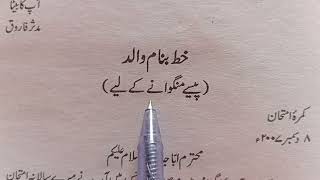 آپ کا بیٹا
مدثر فاروق
خط بنام والد
(پیسے منگوانے کے لیے)
کمرۂ امتحان
۸ دسمبر ۲۰۰۷ء
محترم ابا جا سلام علیکم